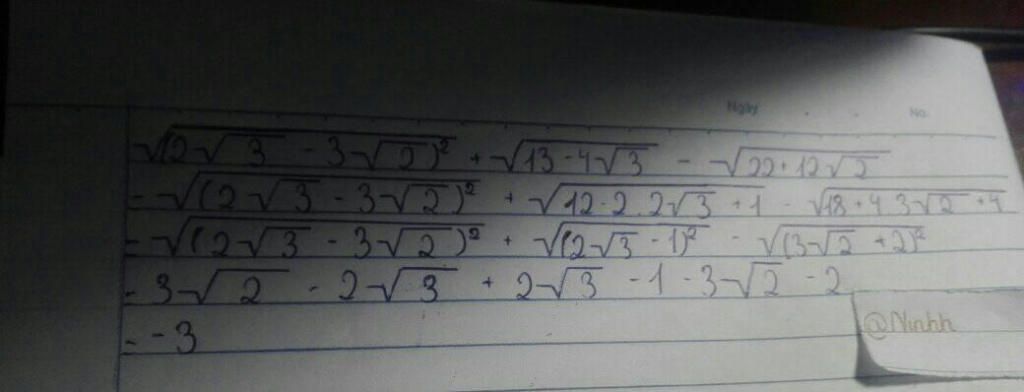 Ngày No.
√(2√3 - 3√2)² + √13-4√3 - √22+12√2
= √(2√3 - 3√2)² + √12-2.2√3+1 - √18+4.3√2+4
= √(2√3 - 3√2)² + √(2√3-1)² - √(3√2+2)²
= 3√2 - 2√3 + 2√3 - 1 - 3√2 - 2
= -3
@Ninhh